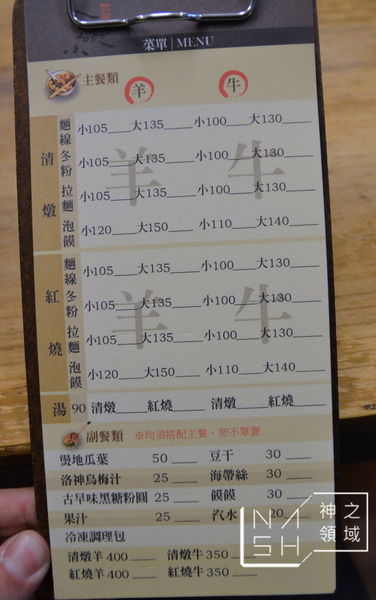 菜單 | MENU
主餐類 羊 牛
清燉
麵線 小105___大135___ 小100___大130___
冬粉 小105___大135___ 小100___大130___
拉麵 小105___大135___ 小100___大130___
泡饃 小120___大150___ 小110___大140___
羊 牛
紅燒
麵線 小105___大135___ 小100___大130___
冬粉 小105___大135___ 小100___大130___
拉麵 小105___大135___ 小100___大130___
泡饃 小120___大150___ 小110___大140___
羊 牛
湯 90 清燉___紅燒___ 清燉___紅燒___
副餐類 ※均須搭配主餐，恕不單賣
燙地瓜葉 50 ___ 豆干 30 ___
洛神烏梅汁 25 ___ 海帶絲 30 ___
古早味黑糖粉圓 25 ___ 饃饃 30 ___
果汁 25 ___ 汽水 20
冷凍調理包
清燉羊400___ 清燉牛350___
紅燒羊400___ 紅燒牛350___
神之領域